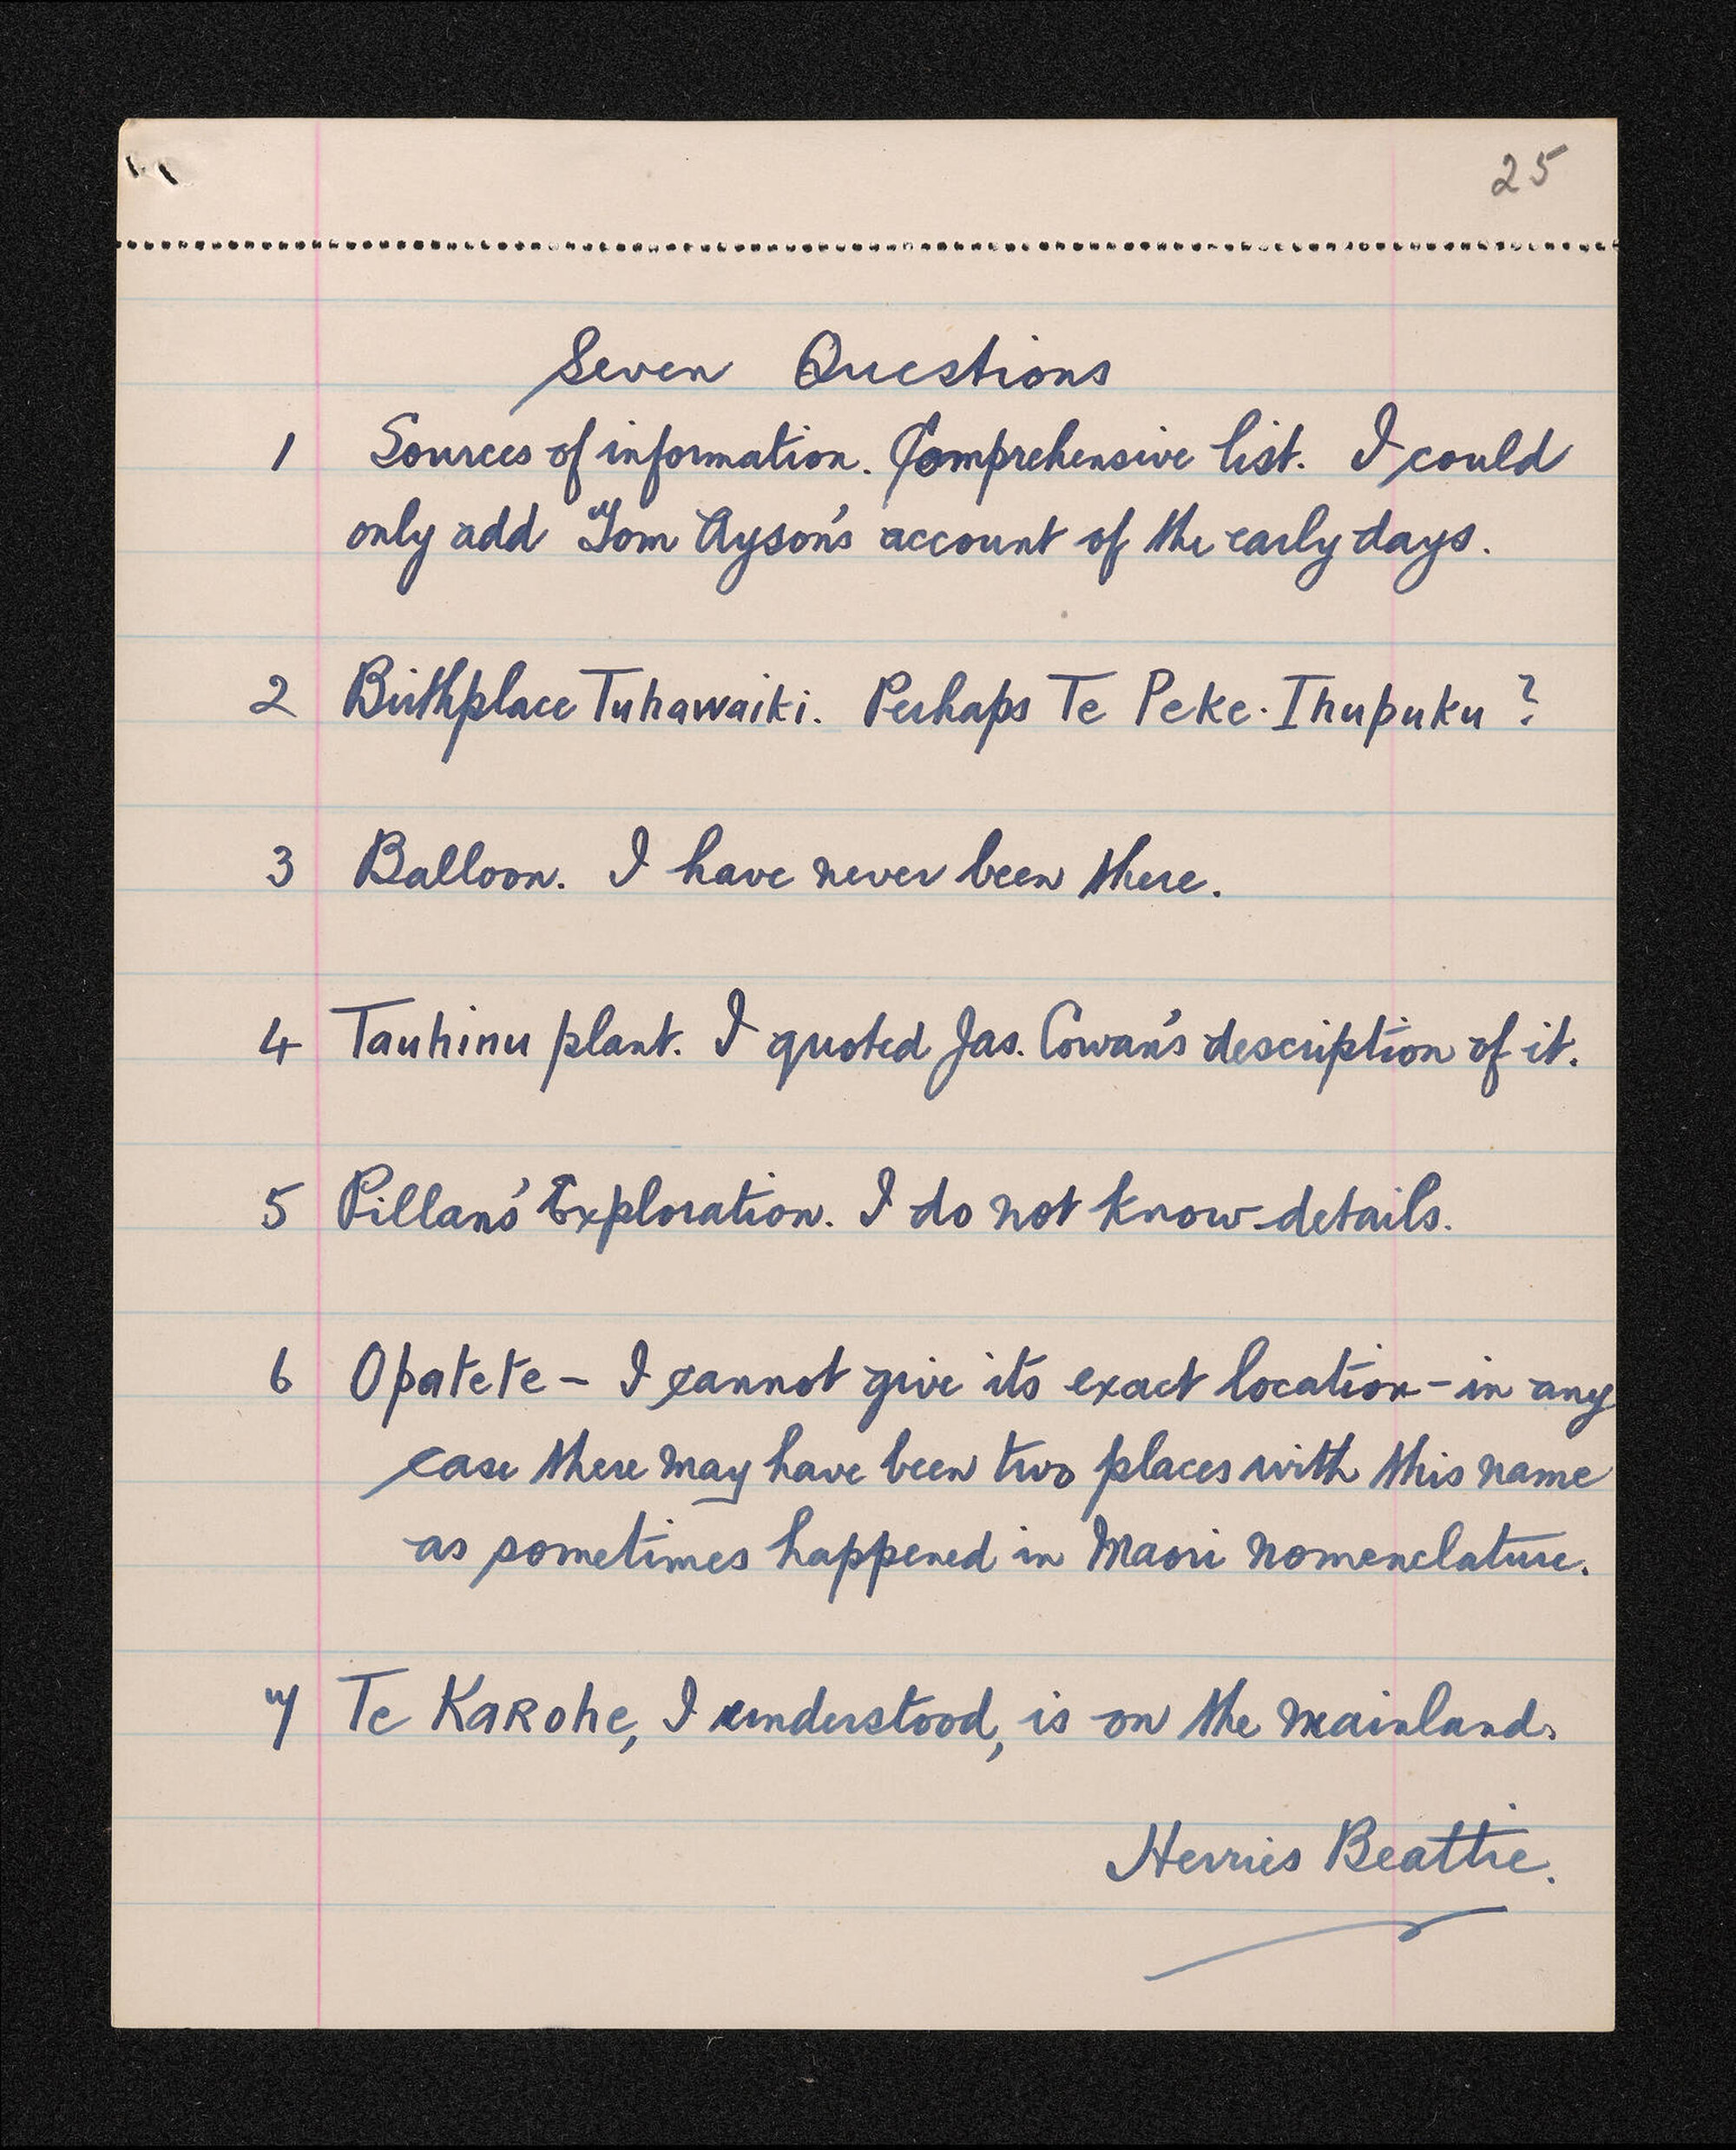 25
Seven Questions
1 Sources of information. Comprehensive list. I could
only add Tom Ayson's account of the early days.
2 Birthplace Tuhawaiki. Perhaps Te Peke. Ihupuku?
3 Balloon. I have never been there.
4 Tauhinu plant. I quoted Jas. Cowan's description of it.
5 Pillans' Exploration. I do not know details.
6 Opatete – I cannot give its exact location – in any
case there may have been two places with this name
as sometimes happened in Maori nomenclature.
7 Te Karohe, I understood, is on the mainland.
Herries Beattie.